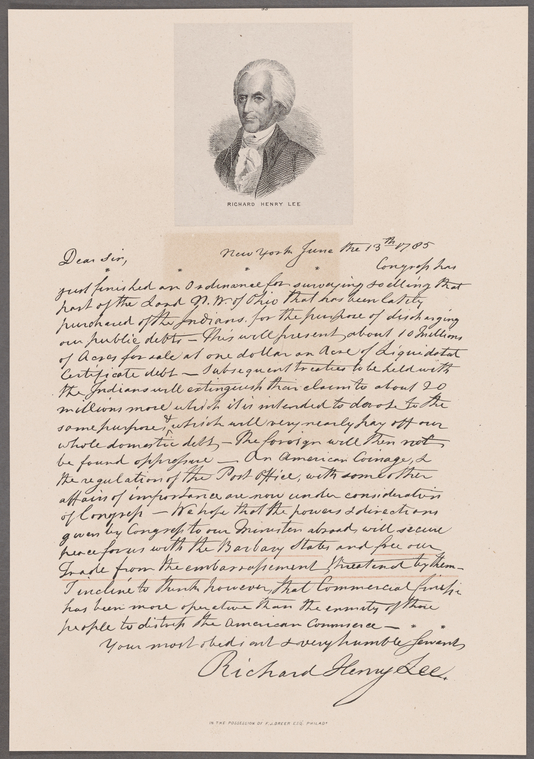 RICHARD HENRY LEE
New York June the 13th 1785
Dear Sir,
Congress has
just finished an Ordinance for surveying & selling that
part of the Land N. W. of Ohio that has been lately
purchased of the Indians, for the purpose of discharging
our public debts — This will present about 10 Millions
of Acres for sale at one dollar an Acre of Liquidated
Certificate debt — Subsequent treaties to be held with
the Indians will extinguish their claim to about 20
millions more which it is intended to devote to the
same purpose, & which will very nearly pay off our
whole domestic debt — The foreign will then not
be found oppressive — An American Coinage, &
the regulation of the Post Office, with some other
affairs of importance are now under consideration
of Congress — We hope that the powers & directions
given by Congress to our Ministers abroad, will secure
peace for us with the Barbary States and free our
Trade from the embarrassment threatened by them —
I incline to think however, that Commercial finesse
has been more operative than the enmity of those
people to distress the American Commerce —
Your most obedient & very humble Servant
Richard Henry Lee.
IN THE POSSESSION OF F. J. DREER ESQ. PHILADA